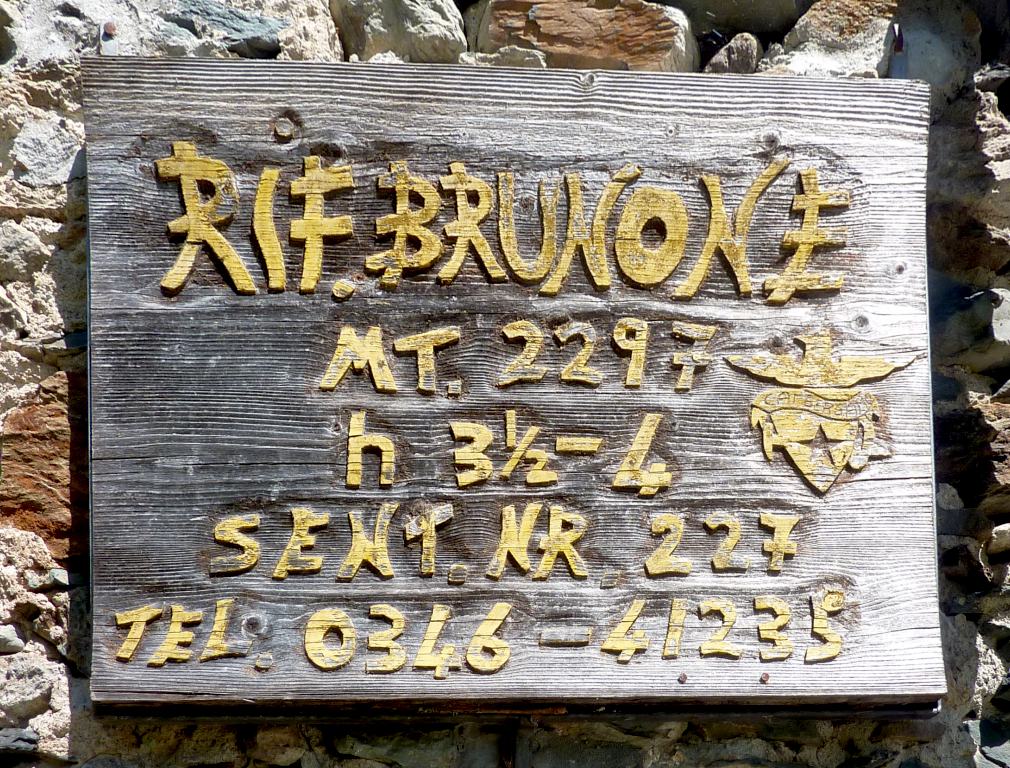 RIF. BRUNONE
MT. 2297
h 3½ - 4
SENT. NR. 227
TEL. 0346 - 41235